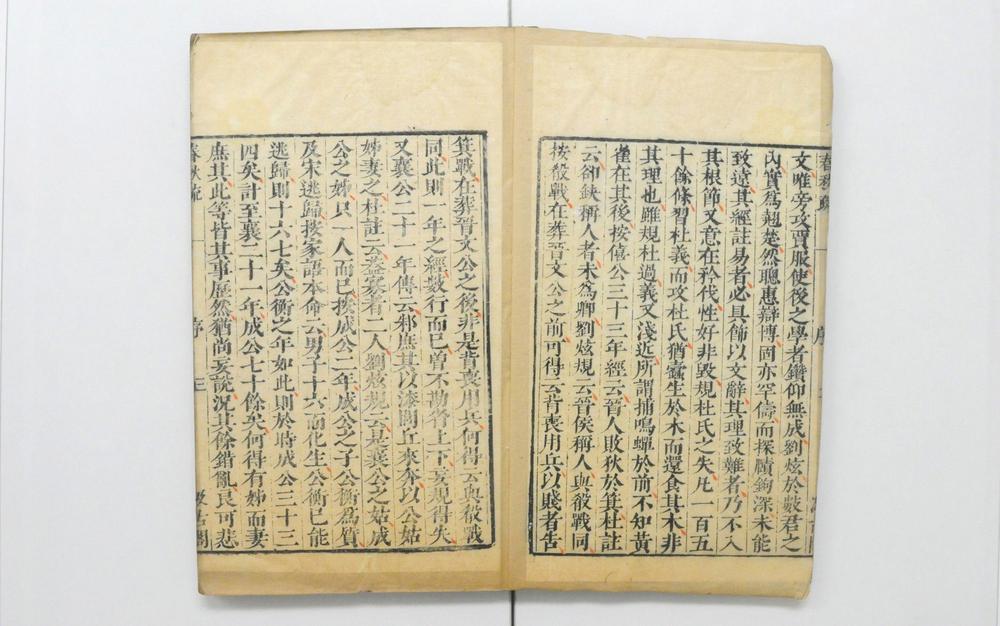 春秋疏 序
文唯旁攻賈服使後之學者鑽仰無成劉炫於數君之
內實為翹楚然聰惠辯博固亦罕儔而探賾鉤深未能
致遠其經註易者必具飾以文辭其理致難者乃不入
其根節又意在矜伐性好非毀規杜氏之失凡一百五
十餘條習杜義而攻杜氏猶蠹生於木而還食其木非
其理也雖規杜過義又淺近所謂捕鳴蟬於前不知黃
雀在其後按僖公三十三年經云晉人敗狄於箕杜註
云郤缺稱人者未為卿劉炫規云晉侯稱人與殽戰同
按殽戰在葬晉文公之前可得云背喪用兵以賤者告
箕戰在葬晉文公之後非是背喪用兵何得云與殽戰
同此則一年之經數行而已曾不勘省上下妄規得失
又襄公二十一年傳云邾庶其以漆閭丘來奔以公姑
姊妻之杜註云蓋寡者二人劉炫規云是襄公之姑成
公之姊只一人而已按成公二年成公之子公衡為質
及宋逃歸按家語本命云男子十六而化生公衡已能
逃歸則十六七矣公衡之年如此則於時成公三十三
四矣計至襄二十一年成公七十餘矣何得有姊而妻
庶其此等皆其事歷然猶尚妄說況其餘錯亂良可悲
春秋疏 序 三 汲古閣